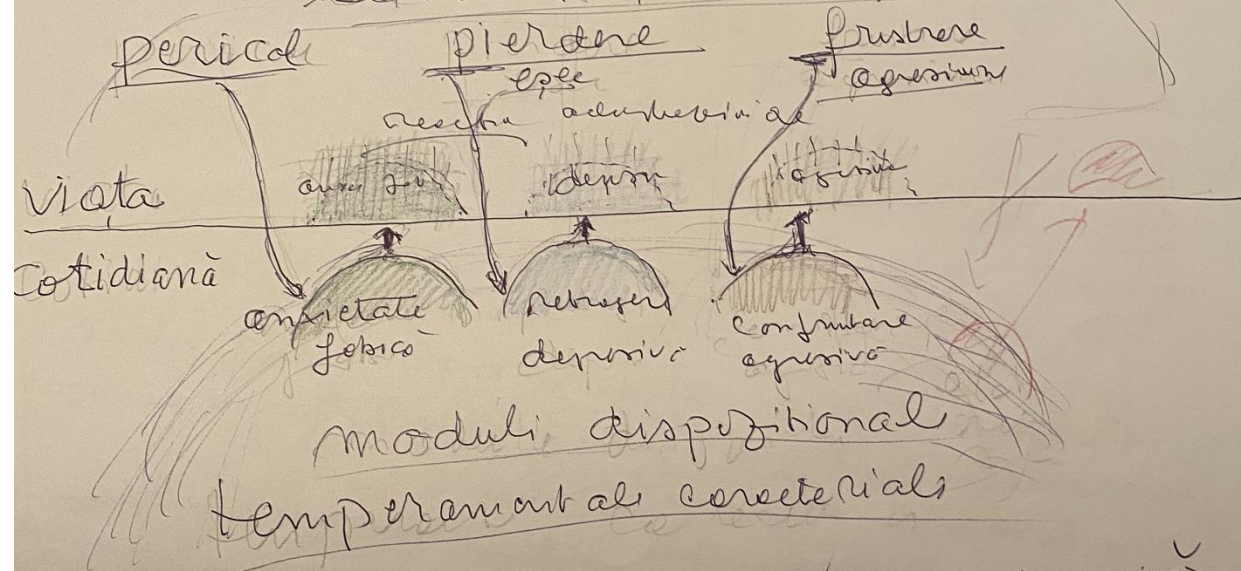 pericol
pierdere
eșec
frustrare
agresiune
reacția
depresiv
agresivă
Viața
Cotidiană
anxietate
fobică
retragere
depresivă
confruntare
agresivă
moduli dispozițional
temperamentali caracteriali